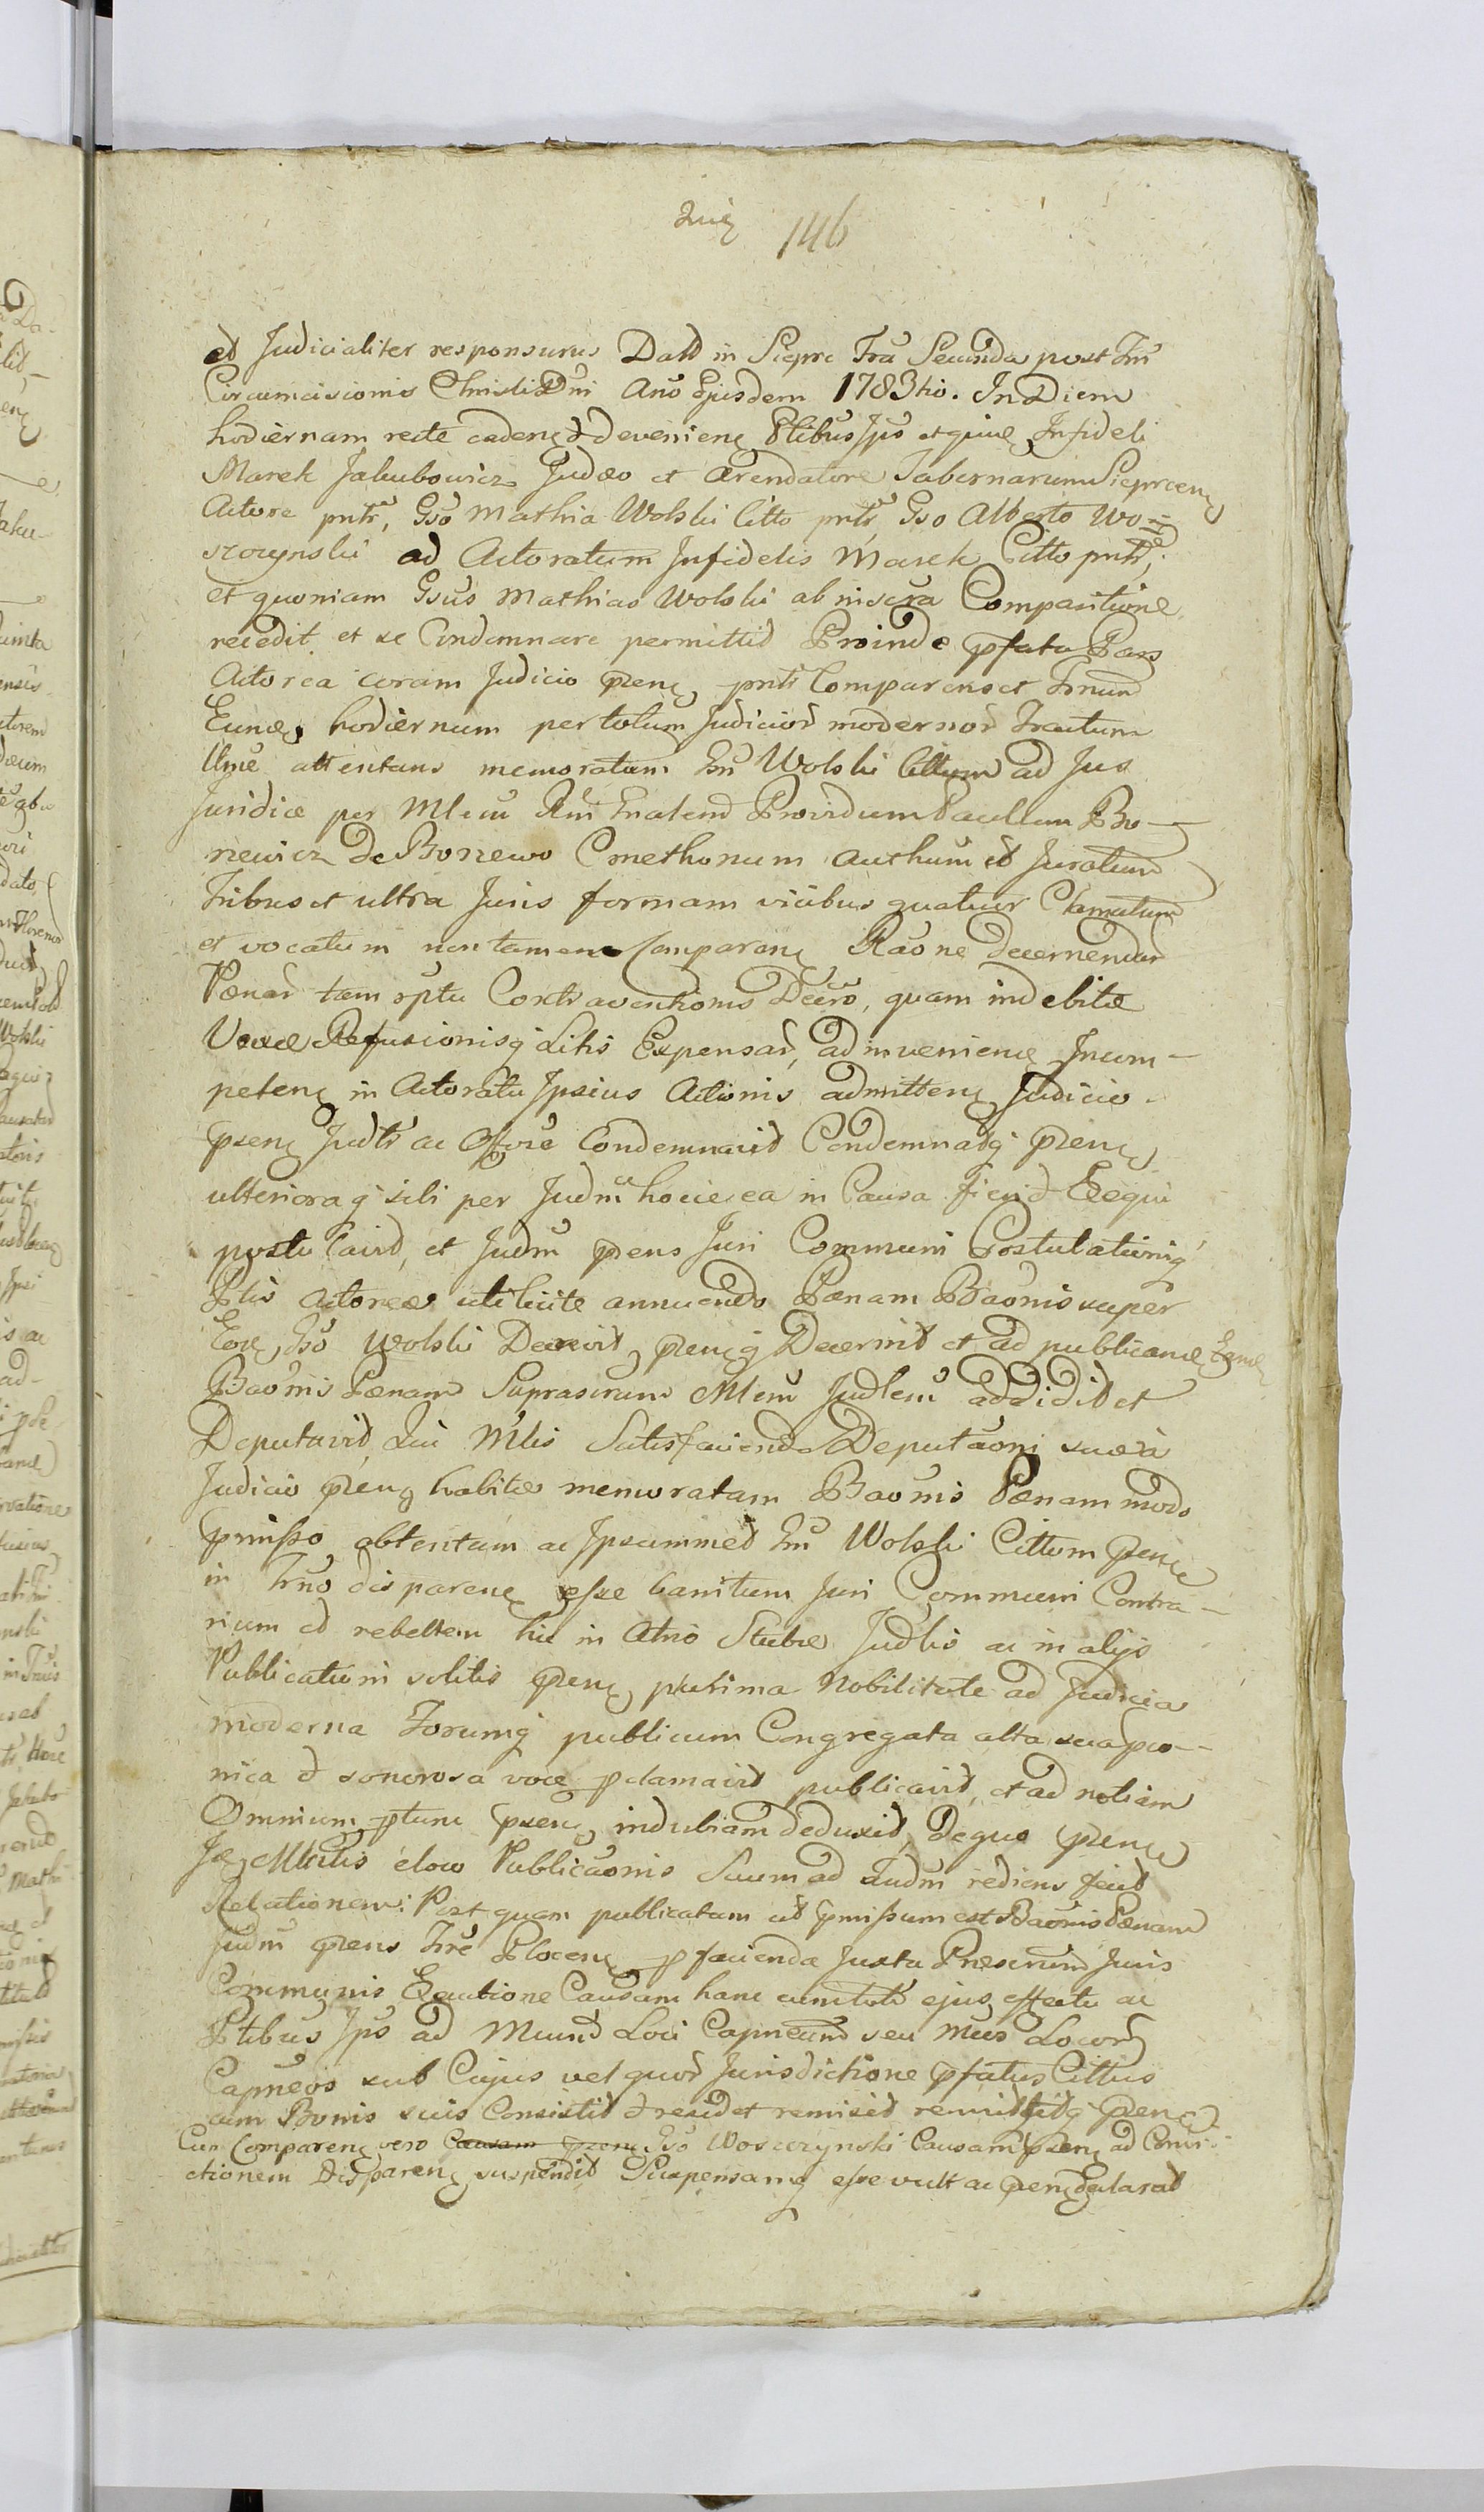 146
et Judicialiter responsurus Datt in Sieprc Fra Secunda post Fm
Circumcisionis Christi Dni Ano Ejusdem 1783tio. In Diem
hodiernam recte cadenɕ & devenienɕ Ptibus Ips Infideli
Marek Jakubowicz Judæo et Arendatore Tabernarum Sieprcenɕ
Actore pntr, Gso Mathia Wolski Citto pntr, Gso Alberto Wo=
szczynski ad Actoratum Infidelis Marek Citto pntr,
et quoniam Gsus Mathias Wolski ab Comparitione
recedit et se Condemnare permittit Proinde pfata Pars
Actorea coram Judicio pzenɕ pntr Comparens et Tnum
hodiernum per totum Judicior modernor Tractum
attentans memoratum Gsm Wolski Cittum ad Jus
Juridice per Mlem Rni Gnalem Providum Paullum Bo-
newicz De Bonewo Cmethonum authum et Juratum
Tribus et ultra Juris formam vicibus quatuor Clamatum
et vocatum non tamen Comparenɕ Raone decernendar
Pœnar tam rptu Contraventionis Decro, quam indebitæ
Vexæ Refusionisq Litis Expensar, ad invenienɕ Incom-
petenɕ in Actoratu Ipsius Actionis admittenɕ Judicio
pzenɕ Judtr ac Condemnavit Condemnatq pzenɕ
ulterioraq sibi per Judm hocce ea in Causa fiend Exequi
postulavit, et Judm pzens Juri Communi Postulationiq
Ptis Actoreæ uti licite annuendo Pœnam Baonis super
Gso Wolski Decrevit, pzenɕq Decernit et ad publicanɕ
Baonis Pœnam Suprascrum Mlem Judlem addidit et
Deputavit, Qui Mlis Satisfaciendo Deputaoni suæ a
Judicio pzenɕ habitæ memoratam Baonis Pœnam modo
pmisso obtentam ac Ipsummet Gsm Wolski Cittum pzenɕ
in Tno disparenɕ esse banitum Juri Communi Contra-
rium et rebellem hic in Atrio Stubæ Judlis ac in alijs
Publicationi solitis pzenɕ plurima Nobilitate ad Judicia
moderna Forumq publicum Congregata alta præco-
nica & sonorosa voce pclamavit publicavit, et ad notiam
Omnium ptum pzenɕ indubiam deduxit, De quo pzenɕ
Publicaonis Suum ad Judm rediens fecit
Relationem: Post quam publicatam ut pmissum est Baonis Pœnam
Judm pzens Tre Plocenɕ p facienda Juxta Præscrum Juris
Communis Exeutione Causam hanc cum totr ejus effectu ac
Ptibus Ips ad Munus Loci Capneum seu Mus Locor
Capneos sub Cujus vel quor Jurisdictione pfatus Cittus
cum Bonis suis Consistit & residet remisit remittitq pzenɕ
Cum Comparenɕ vero Causam pzenɕ Gso Woszczynski Causam pzenɕ ad Convi-
ctionem Disparenɕ suspendit Suspensamq esse vult ac pzenɕ declarat